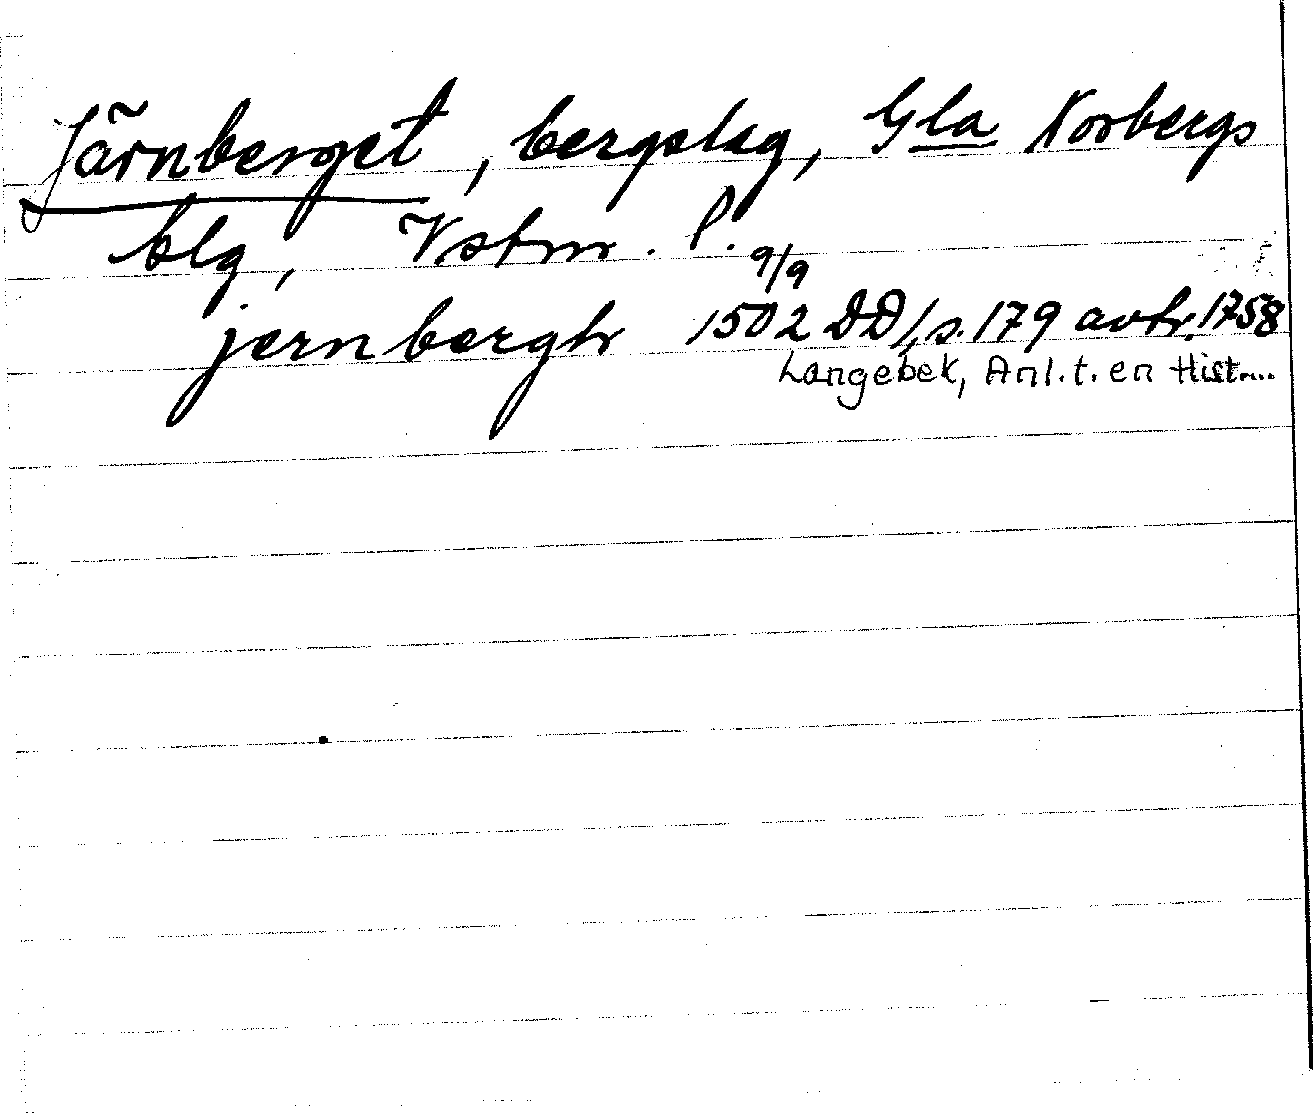 Järnberget, bergslag, Gla Norbergs
blg, Vstm. l.
9/9
jernbergh 1502 DD 1, s. 179 avtr. 1758
Langebek, Anl. t. en Hist....